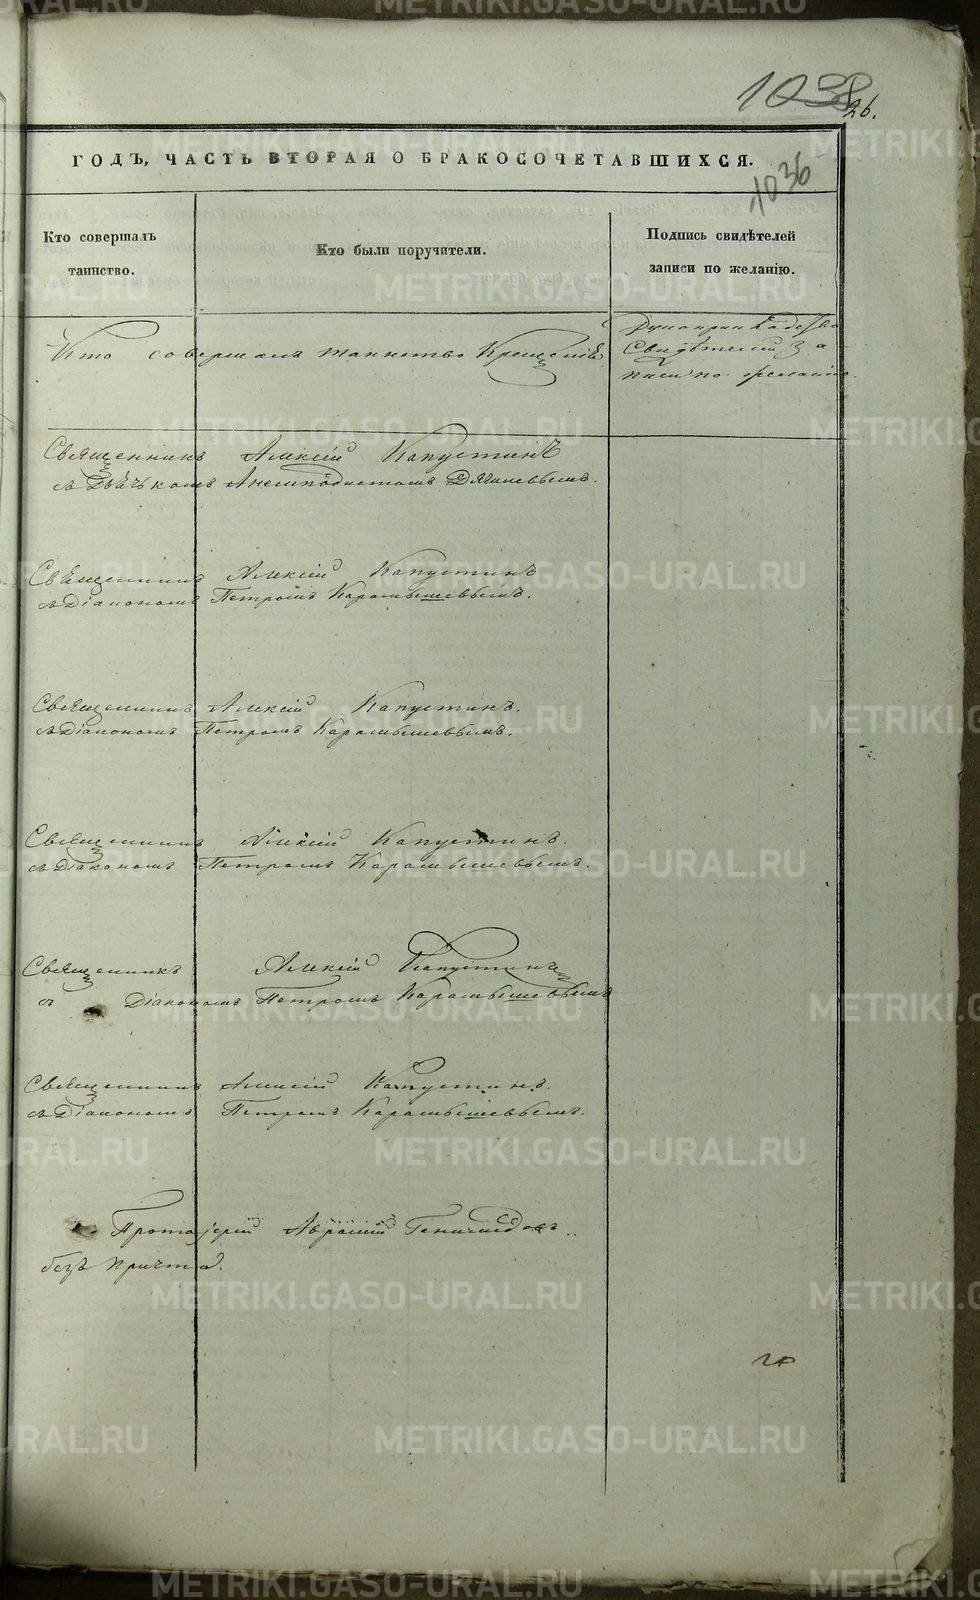 1038
26.
ГОДЪ, ЧАСТЬ ВТОРАЯ О БРАКОСОЧЕТАВШИХСЯ.
1036
Кто совершалъ
таинство.
Кто были поручители.
Подпись свидѣтелей
записи по желанію.
Кто совершалъ таинство Крещенія
Свидѣтелей за
писи по желанію.
Священникъ Алексій Капустинъ
съ Дьячькомъ
Священникъ Алексій Капустинъ
съ Діакономъ Петромъ Карамышевымъ.
Священникъ Алексій Капустинъ.
съ Діакономъ Петромъ Карамышевымъ.
Священникъ Алексій Капустинъ.
съ Діакономъ Петромъ Карамышевымъ.
Священникъ Алексій Капустинъ
съ Діакономъ Петромъ Карамышевымъ
Священникъ Алексій Капустинъ.
съ Діакономъ Петромъ Карамышевымъ.
Протоіерей Аврамій
безъ причта.
METRIKI.GASO-URAL.RU